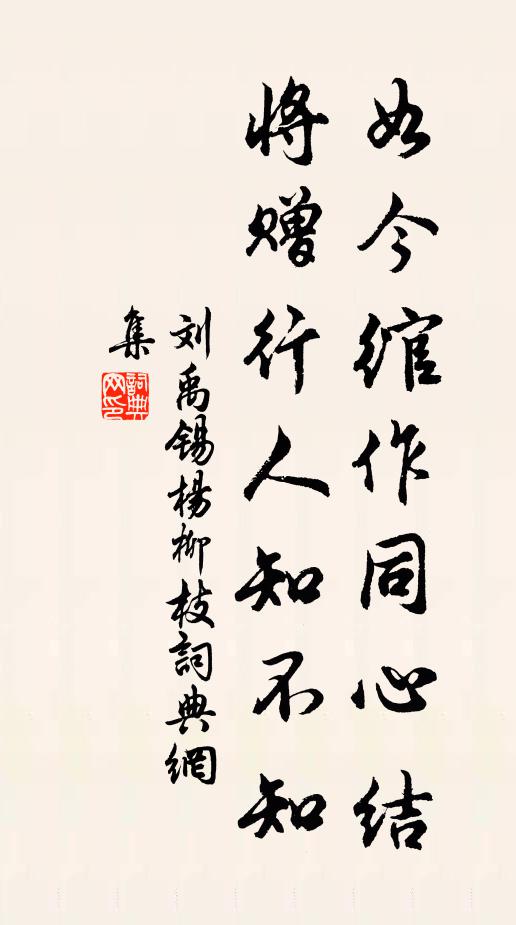 如今綰作同心结
将赠行人知不知
刘禹锡杨柳枝詞典網
集
詞典
网印